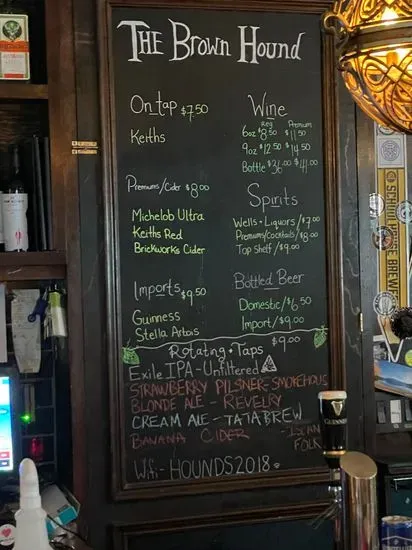 THE BROWN HOUND
On tap $7.50
Keiths
Premiums/Cider $8.00
Michelob Ultra
Keiths Red
Brickworks Cider
Imports $9.50
Guinness
Stella Artois
Wine
Reg Premium
6oz $8.50 $11.50
9oz $12.50 $14.50
Bottle $36.00 $41.00
Spirits
Wells + Liquors/$7.00
Premiums/Cocktails/$8.00
Top Shelf/$9.00
Bottled Beer
Domestic/$6.50
Import/$9.00
Rotating Taps $9.00
Exile IPA-Unfiltered
STRAWBERRY PILSNER-SMOKEHOUSE
BLONDE ALE - REVELRY
CREAM ALE - TATABREW
BANANA CIDER
Wifi-HOUNDS2018
GUINNESS